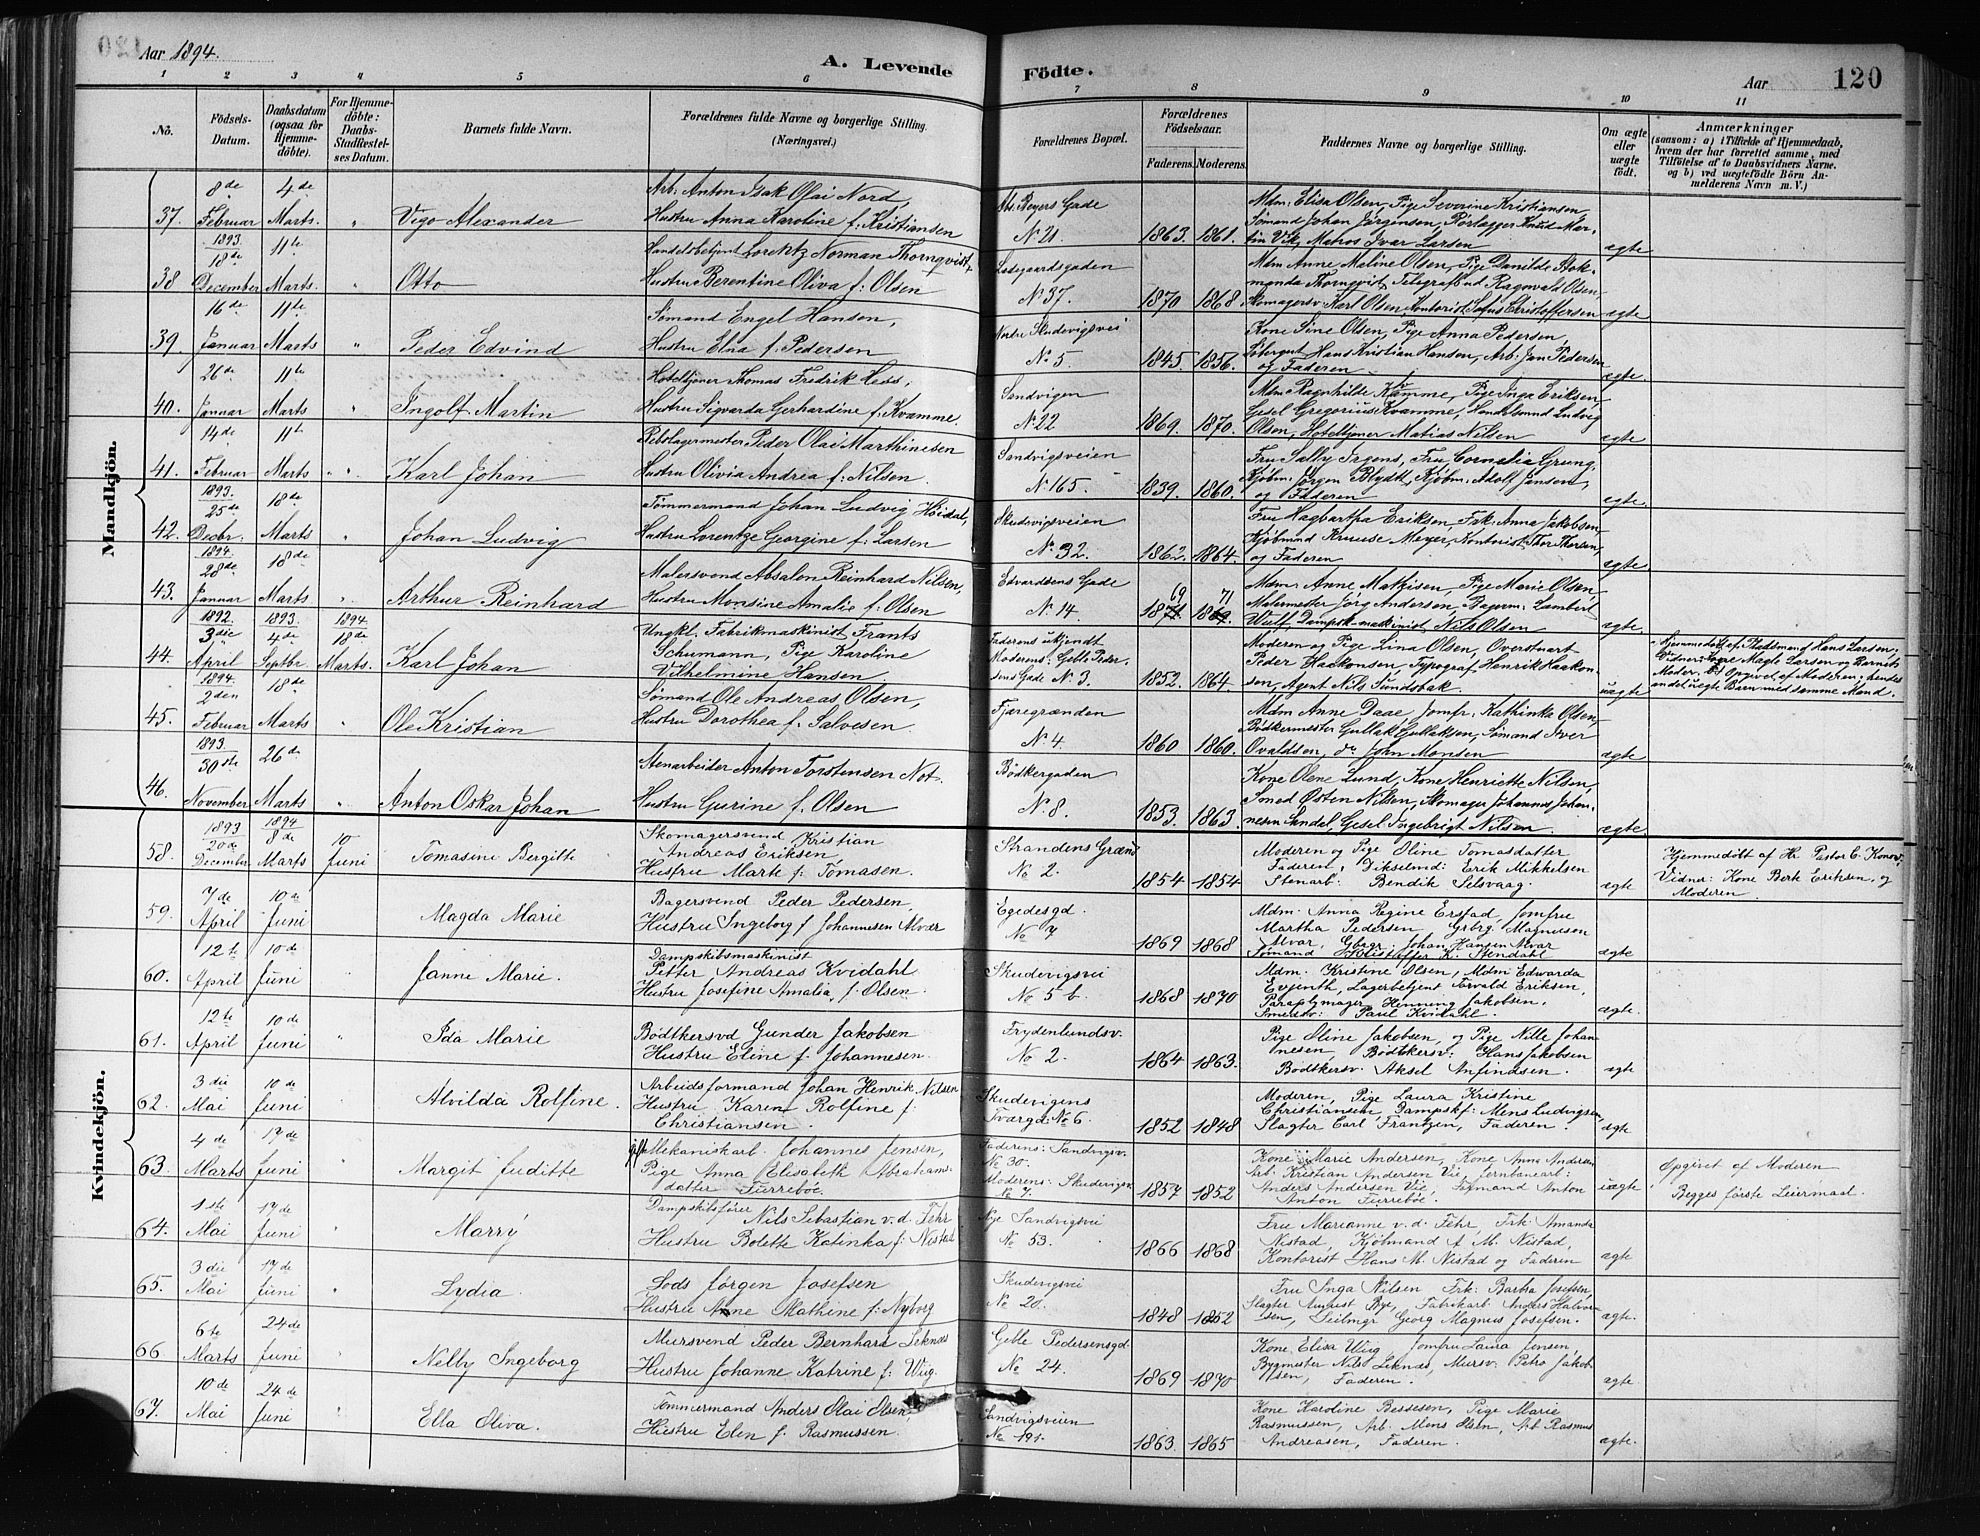 Aar 1894.
A. Levende Födte.
Aar
120
1 2 3 4 5 6 7 8 9 10 11
No.
Födsels-Datum.
Daabsdatum (ogsaa for Hjemmedöbte).
For Hjemmedöbte: Daabs-Stadfæstelses Datum.
Barnets fulde Navn.
Forældrenes fulde Navne og borgerlige Stilling. (Næringsvei.)
Forældrenes Bopæl.
Forældrenes Födselsaar.
Faderens. Moderens.
Faddernes Navne og borgerlige Stilling.
Om ægte eller uægte födt.
Anmærkninger
(saasom: a) i Tilfælde af Hjemmedaab, hvem der har forrettet samme, med Tilföielse af to Daabsvidners Navne, og b) ved uægtefödte Börn Anmelderens Navn m. V.)
Mandkjön.
37. 8de Februar 4de Marts. " Vigo Alexander
Arb: Anton Isak Olai Nord,
Hustru Anna Karoline f: Kristiansen
Beyers Gade
No 21. 1863. 1861.
Mdm: Elisa Olsen, Pige Severine Kristiansen
Sømand Johan Jørgensen, Rørlægger Knud Martin Vik, Matros Ivar Larsen ægte
38 1893 18de December 11te Marts. " Otto
Handelsbetjent Lorentz Norman Thornqvist,
Hustru Berentine Oliva f: Olsen
Ladegaardsgaden
No 37. 1870 1868
Mdm Anne Maline Olsen, Pige Danilde
Thornqvist, Telegrafbud Ragnvald Olsen,
Skomagersv: Karl Olsen, Kontorist Sofus Christoffersen ægte
39. 16de Januar 11te Marts " Peder Edvind
Sømand Engel Hansen,
Hustru Elna f. Pedersen
Nordre Skudevigsvei
No 5 1845 1856.
Kone Sine Olsen, Pige Anna Pedersen,
Hans Kristian Hansen, Arb: Jan Pedersen
og Faderen ægte.
40. 26de Januar 11te Marts " Ingolf Martin
Hoteltjener Thomas Fredrik Hess,
Hustru Sigvarda Gerhardine f: Kvamme.
Sandvigen
No 22 1869. 1870.
Mdm Ragnhilde Kvamme, Pige Inga Eriksen,
Gesel Gregorius Kvamme, Handelsmand Ludvig
Olsen, Hoteltjener Matias Nilsen ægte
41. 14de Februar 11te Marts " " Karl Johan
Rebslagermester Peder Olai Marthinesen
Hustru Olivia Andrea f: Nilsen.
Sandvigsveien
No 165. 1839. 1860.
Fru Sally Irgens, Fru Cornelia Grung,
Kjøbm: Jørgen Blydt, Kjøbm: Adolf Jansen,
og Faderen ægte
42. 1893. 25de Decbr. 18de Marts " Johan Ludvig
Tømmermand Johan Ludvig Høidal,
Hustru Lorentze Georgine f: Larsen
Skudevigsveien
No 32. 1862. 1864.
Fru Hagbartha Eriksen, Frk: Anna Jakobsen,
Kjøbmand Kruuse Meyer, Kontorist Thor Thorsen,
og Faderen ægte
43. 1894. 28de Januar 18de Marts " Arthur Reinhard
Malersvend Absalon Reinhard Nilsen,
Hustru Monsine Amalie f: Olsen
Edvardsens Gade
No 14. 69 1871 71 1869.
Mdm: Anne Mathisen, Pige Marie Olsen,
Malermester Jørg Andersen, Lambert
Wulf, Dampsk: maskinist Nils Olsen ægte
44. 1892. 3die April 1893. 4de Septbr 1894 18de Marts. Karl Johan
Ungkl. Fabrikmaskinist Frants
Schumann, Pige Karoline
Vilhelmine Hansen.
Faderens ukjendt
Moderens: Gelle Pedersens Gade No 3. 1852. 1864.
Moderen og Pige Lina Olsen, Overstuert
Peder Haakonsen, Typograf Henrik Haakonsen, Agent Nils Sundsbak. uægte
Hjemmedøbt af Stadsmand Hans Larsen.
Vidner: Magle Larsen og Barnets
Moder. b) Opgivet af Moderen: hendes
andet uægte Barn med samme Mand.
45. 1894. 2den Februar 18de Marts " Ole Kristian
Sømand Ole Andreas Olsen,
Hustru Dorothea f: Salvesen
Fjæregrænden
No 4. 1860 1860.
Mdm Anne Daae, Jomfr: Kathinka Olsen,
Bødkermester Gullak Gullaksen, Sømand Iver
Ovaldsen, do John Monsen ægte
46. 1893. 30ste November 26de Marts " Anton Oskar Johan
Stenarbeider Anton Torstensen Not.
Hustru Gurine f. Olsen
Bødkergaden
No 8. 1853. 1863.
Kone Olene Lund, Kone Henriette Nilsen,
Smed Østen Nilsen, Skomager Johannes Johannesen Sandal, Gesel Ingebrigt Nilsen. ægte
Kvindekjön.
58. 1893 20de December 1894 8de Marts 10 Juni Tomasine Bergitte
Skomagersvend Kristian
Andreas Eriksen
Hustru Marte f: Tomasen.
Strandens Grænd
No 2. 1854 1854
Moderen og Pige Oline Tomasdatter
Faderen, Erik Mikkelsen
Stenarb: Bendik Selsvaag. ægte
Hjemmedøbt af Hr Pastor C. Konow.
Vidner: Kone Berte Eriksen, og
Moderen
59. 7de April 10de Juni Magda Marie
Bagersvend Peder Pedersen
Hustru Ingeborg f Johannesen Alvær
Egedesgd.
No 7 1869 1868
Mdm. Anna Regine Erstad, Jomfru
Martha Pedersen, Grbrg. Magnusen
Alvær, Gbrgr: Johan Hansen Alvær
Sømand Kristoffer K. Stendahl ægte
60. 12te April 10de Juni " Janne Marie.
Dampskibsmaskinist
Petter Andreas Kvidahl
Hustru Josefine Amalia f. Olsen.
Skudevigsvei
No 5b. 1868 1870
Mdm. Kristine Olsen, Mdm Edwarda
Evjenth, Lagerbetjent Arvald Eriksen,
Paraplymager Henning Jakobsen,
Smedsv: Paul Kvidahl. ægte.
61. 12te April 10de Juni " Ida Marie
Bødtkersvd Gunder Jakobsen
Hustru Eline f: Johannesen.
Frydenlundsv.
No 2. 1864 1863.
Pige Oline Jakobsen, og Pige Nille Johannesen, Bødtkersv: Hans Jakobsen
Bødtkersv. Aksel Anfindsen. ægte
62. 3die Mai 10de Juni Alvilda Rolfine.
Arbeidsformand Johan Henrik Nilsen
Hustru Karen Rolfine f:
Christiansen.
Skudevigens
Tværgd: No 6. 1852 1848
Moderen, Pige Laura Kristine
Christiansen, Dampskf: Mens Ludvigsen,
Slagter Carl Frantzen, Faderen. ægte.
63. 4de Marts 17de Juni " Margit Juditte
gift Mekaniskarb. Johannes Jensen,
Pige Anna Elisabeth Abrahamsdatter Turrebøe.
Faderens: Sandvigsv.
No 30.
Moderens: Skudevigsv.
No 7. 1857 1852
Kone Marie Andersen, Kone Anna Andersen
Arb: Kristian Andersen Vie, Jerntønearb:
Anders Andersen Vie, Formand Anton
Anton Turrebøe. uægte
Opgivet af Moderen
Begges første Leiermaal.
64. 1ste Mai 17de Juni " Marry
Dampskibsfører
Nils Sebastian v. d. Fehr
Hustru Bolette Katinka f: Nistad
Nye Sandvigsvei
No 53. 1866 1868
Fru Marianne v. d. Fehr, Frk: Amanda
Nistad, Kjøbmand A. M. Nistad,
Kontorist Hans M. Nistad og Faderen ægte
65. 3die Mai 17de Juni " Lydia.
Lods Jørgen Josefsen
Hustru Anne Mathine f: Nyborg
Skudevigsvei
No 20. 1848 1852
Fru Inga Nilsen Frk: Barbra Josefsen,
Slagter August Bye, Fabrikarb: Anders Halvorsen, Seilmgr Georg Magnus Josefsen. ægte.
66 6te Marts 24de Juni Nelby Ingeborg
Mursvend Peder Bernhard Leknes
Hustru Johanne Katrine f: Wiig.
Gelle Pedersensgd.
No 24. 1869 1870
Kone Elisa Wiig Jomfru Laura Jensen,
Bygmester Nils Leknes, Mursv: Petro Jakobsen, Faderen. ægte.
67. 10de Mai 24de Juni " Ella Oliva.
Tømmermand Anders Olai Olsen,
Hustru Elen f. Rasmussen.
Sandvigsveien
No 191. 1863. 1865
Kone Karoline Bessesen, Pige Marie
Rasmussen, Arb. Mons Olsen, Arb Rasmus
Andreasen, Faderen. ægte.